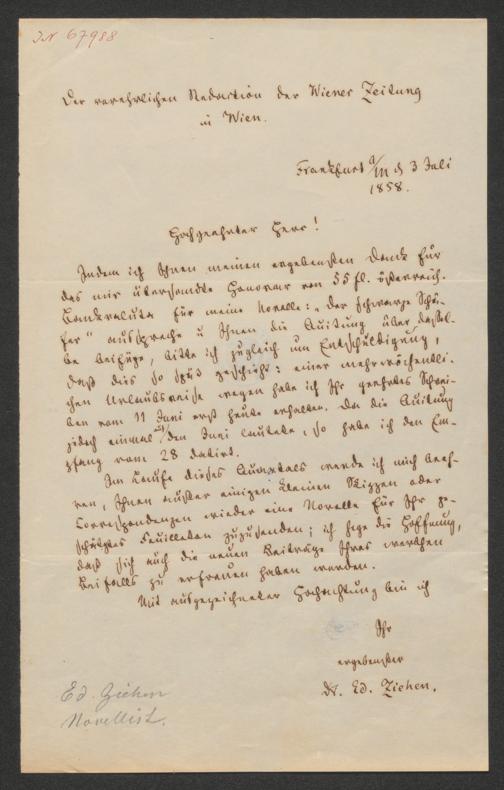 IN 67988
Der verehrlichen Redaction der Wiener Zeitung
in Wien.
Frankfurt a/M d 3 Juli
1858.
Hochgeehrter Herr!
Indem ich Ihnen meinen ergebensten Dank für
das mir übersandte Honorar von 55 fl. österreich.
Bankvaluta für meine Novelle: „der schwarze Schä-
fer" ausspreche u Ihnen die Quitung über dassel-
be beifüge, bitte ich zugleich um Entschuldigung,
daß dies so spät geschieht: einer mehrwöchentli-
chen Urlaubsreise wegen habe ich Ihr geehrtes Schrei-
ben vom 11 Juni erst heute erhalten. Da die Quitung
jedoch einmal auf den Juni lautete, so habe ich den Em-
pfang vom 28 datirt.
Im Laufe dieses Quartals werde ich mich beeh-
ren, Ihnen außer einigen kleinen Skizzen oder
Correspondenzen wieder eine Novelle für Ihr ge-
schätztes Feuilleton zuzusenden; ich hege die Hoffnung,
daß sich auch die neuen Beiträge Ihres werthen
Beifalls zu erfreuen haben werden.
Mit ausgezeichneter Hochachtung bin ich
Ihr
ergebenster
Dr. Ed. Ziehen.
Ed. Ziehen
Novellist.